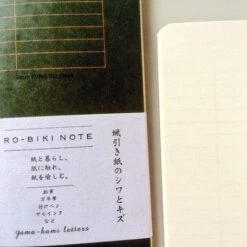 RO-BIKI NOTE
紙と暮らし、
紙に触れ、
紙を愉しむ。
鉛筆
万年筆
付けペン
ガラスペン
など
yama-kami letters
蝋引き紙のシワとキズ